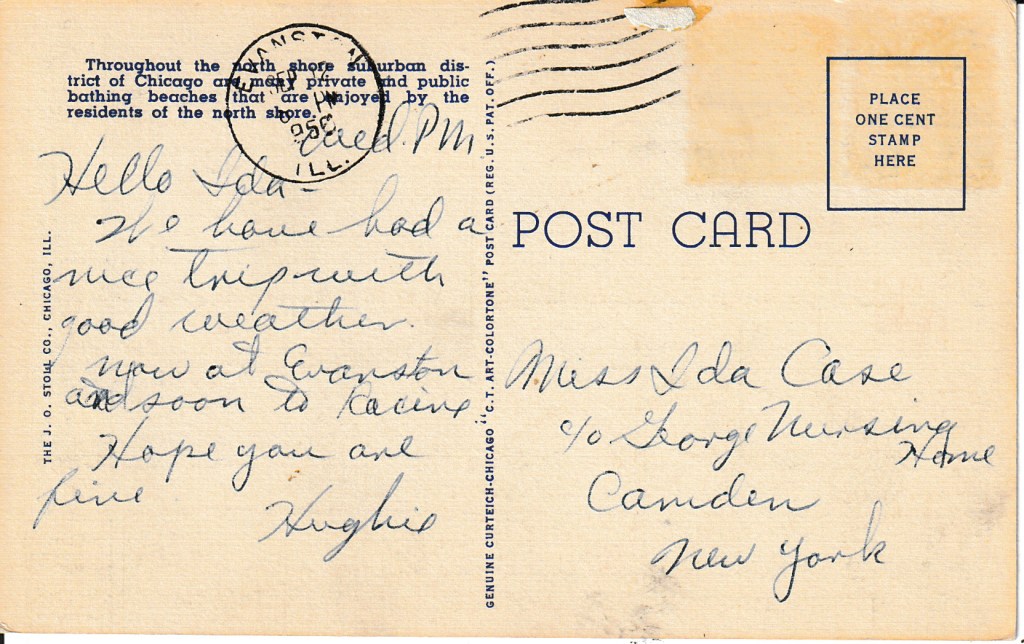 Throughout the north shore suburban dis-
trict of Chicago are many private and public
bathing beaches that are enjoyed by the
residents of the north shore.
EVANSTON
SEP
PM
ILL.
Wed. PM
Hello Ida -
We have had a
nice trip with
good weather.
now at Evanston
and soon to Racine
Hope you are
fine
Hughie
THE J. O. STOLL CO., CHICAGO, ILL.
GENUINE CURTEICH-CHICAGO "C.T. ART-COLORTONE" POST CARD (REG. U.S. PAT. OFF.)
PLACE
ONE CENT
STAMP
HERE
POST CARD
Miss Ida Case
c/o George Nursing
Home
Camden
New York